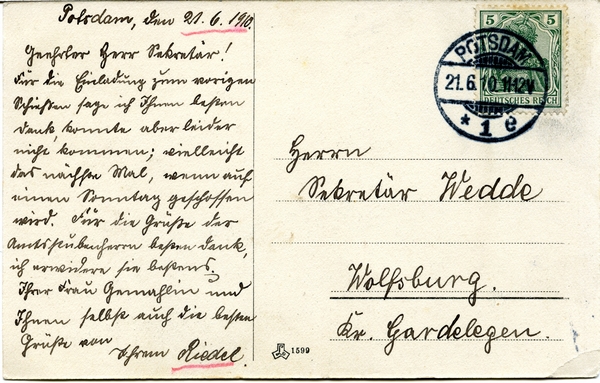 Potsdam, den 21.6.1910.
Geehrter Herr Sekretär!
Für die Einladung zum vorigen
Schießen sage ich Ihnen besten
Dank, konnte aber leider
nicht kommen; vielleicht
das nächste Mal, wenn auf
einen Sonntag geschossen
wird. Für die Grüße der
Amtsstubenherrn besten Dank,
ich erwidere sie bestens.
Ihrer Frau Gemahlin und
Ihnen selbst auch die besten
Grüße von
Ihrem Riedel.
5 5
DEUTSCHES REICH
POTSDAM
21.6.10.11-12V
* 1 e
Herrn
Sekretär Wedde
Wolfsburg.
Kr. Gardelegen.
1599